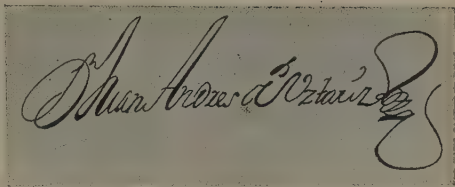 Dn Juan Andres de Vztariz